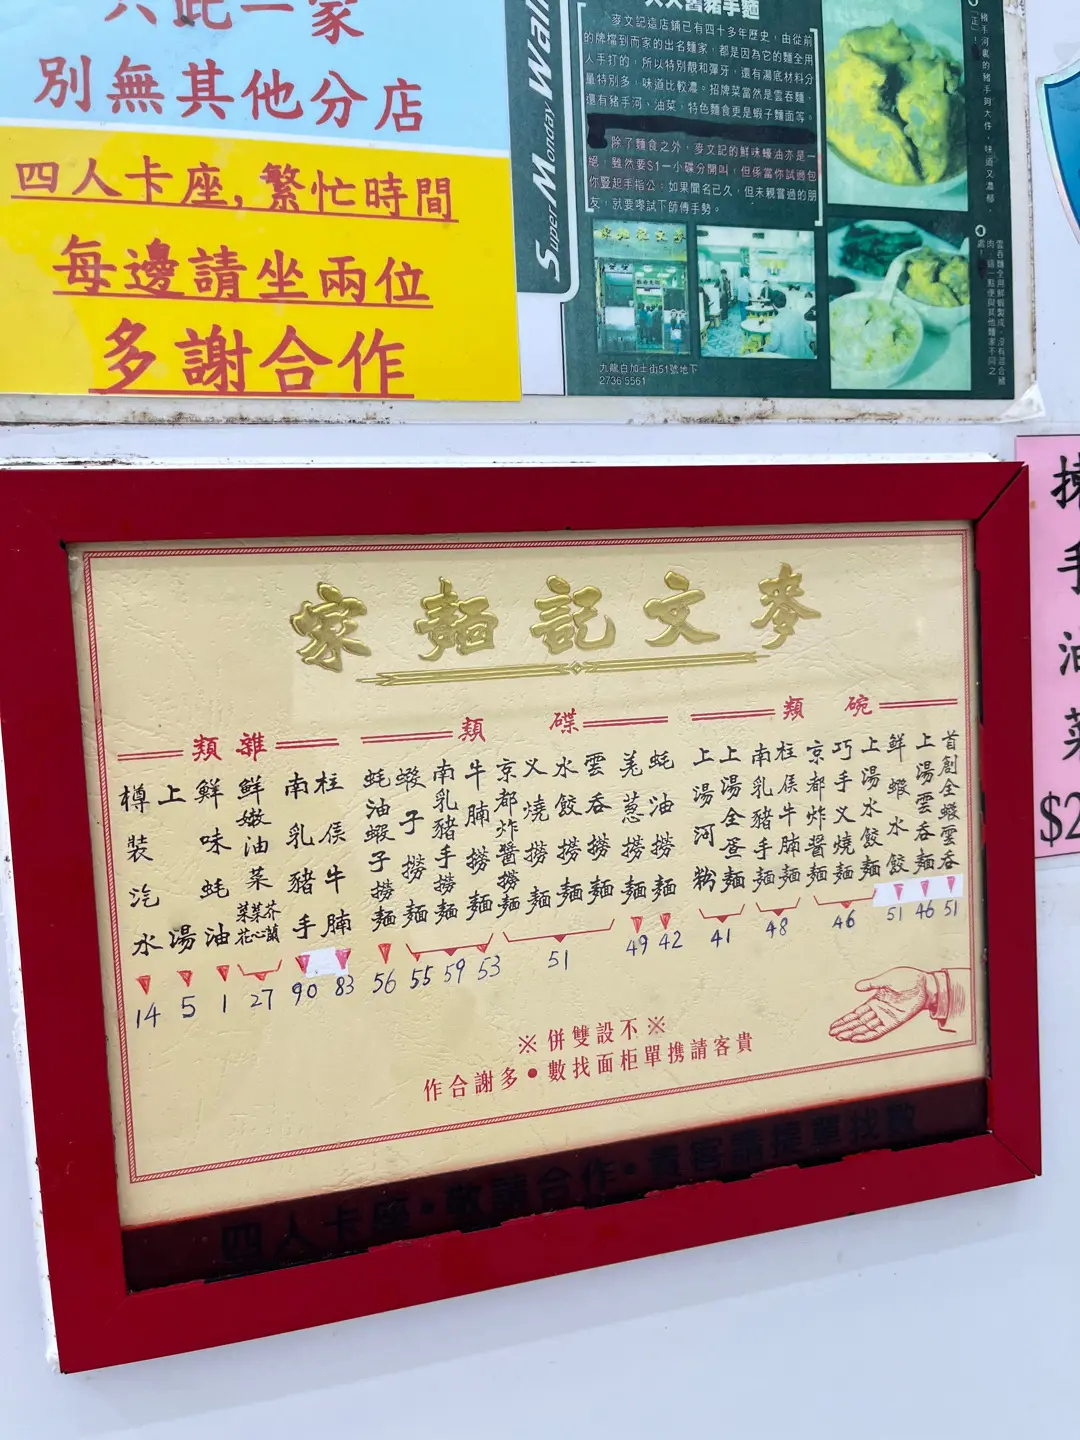 只此一家
別無其他分店
四人卡座,繁忙時間
每邊請坐兩位
多謝合作
Super Monday Walk
麥文記這店鋪已有四十多年歷史,由從前
的牌檔到而家的出名麵家,都是因為它的麵全用
人手打的,所以特別靚和彈牙,還有湯底材料分
量特別多,味道比較濃。招牌菜當然是雲吞麵,
還有豬手河、油菜,特色麵食更是蝦子麵面等。
除了麵食之外,麥文記的鮮味蠔油亦是一
絕,雖然要$1一小碟分開叫,但係當你試過包
你豎起手指公;如果聞名已久,但未親嘗過的朋
友,就要嚟試下師傅手勢。
九龍白加士街51號地下
2736 5561
麥文記麵家
碗類
首創全蝦雲吞 51
上湯雲吞麵 46
鮮蝦水餃 51
上湯水餃麵
巧手叉燒麵
京都炸醬麵
46
柱侯牛腩麵
南乳豬手麵
48
上湯全蛋麵
上湯河粉
41
碟類
蚝油撈麵 42
羗蔥撈麵 49
雲吞撈麵
水餃撈麵
叉燒撈麵
京都炸醬撈麵
51
牛腩撈麵 53
南乳豬手撈麵 59
蝦子撈麵 55
蚝油蝦子撈麵 56
雜類
柱侯牛腩 83
南乳豬手 90
鮮嫩油菜
芥蘭
菜心
菜花
27
鮮味蚝油 1
上湯 5
樽裝汽水 14
※不設雙併※
貴客請携單柜面找數•多謝合作
四人卡座•敬請合作•貴客請提單找數
手
油
菜
$2